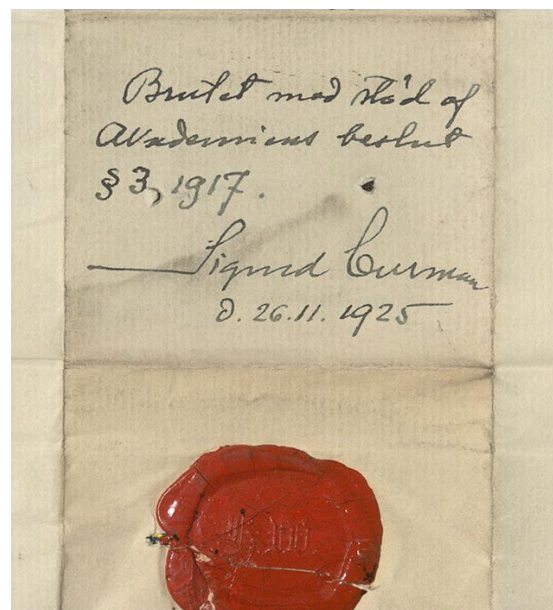 Brutet med stöd af
Akademiens beslut
§ 3, 1917.
Sigurd Curman
d. 26.11. 1925